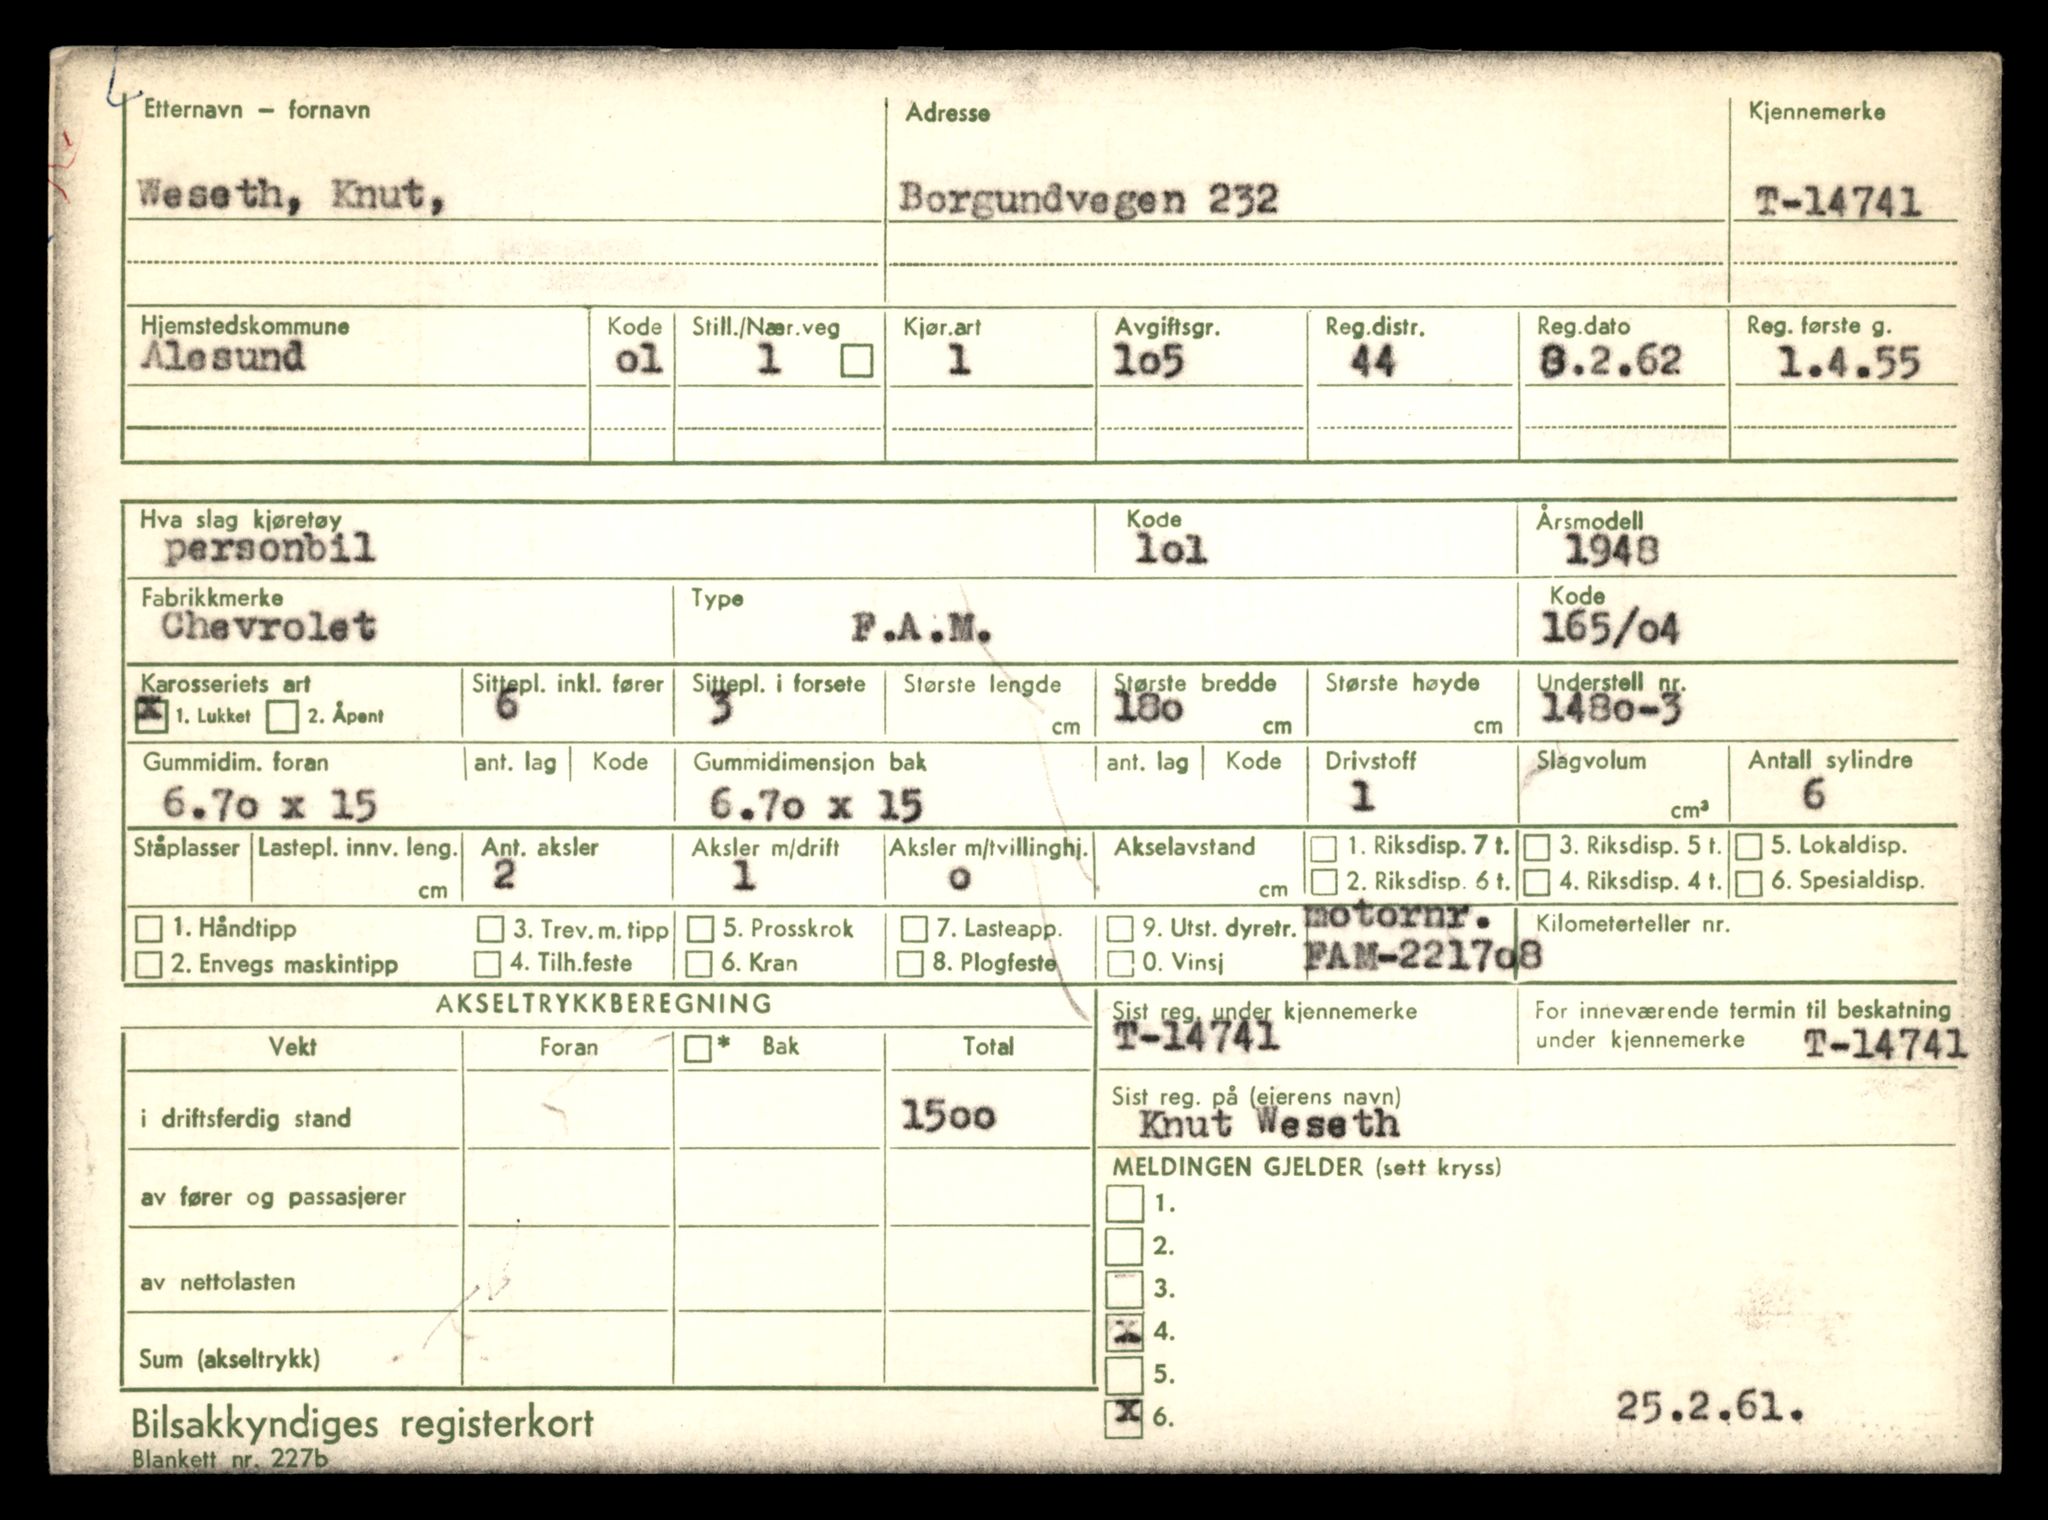 Etternavn – fornavn Adresse Kjennemerke
Weseth, Knut, Borgundvegen 232 T-14741
Hjemstedskommune Kode Still./Nær.veg Kjør.art Avgiftsgr. Reg.distr. Reg.dato Reg. første g.
Alesund o1 1 1 1o5 44 8.2.62 1.4.55
Hva slag kjøretøy Kode Årsmodell
personbil 1o1 1948
Fabrikkmerke Type Kode
Chevrolet F.A.M. 165/o4
Karosseriets art Sittepl. inkl. fører Sittepl. i forsete Største lengde Største bredde Største høyde Understell nr.
x 1. Lukket 2. Åpent 6 3 cm 18o cm cm 148o-3
Gummidim. foran ant. lag Kode Gummidimensjon bak ant. lag Kode Drivstoff Slagvolum Antall sylindre
6.7o x 15 6.7o x 15 1 cm³ 6
Ståplasser Lastepl. innv. leng. Ant. aksler Aksler m/drift Aksler m/tvillinghj. Akselavstand 1. Riksdisp. 7 t. 3. Riksdisp. 5 t. 5. Lokaldisp.
cm 2 1 o cm 2. Riksdisp. 6 t. 4. Riksdisp. 4 t. 6. Spesialdisp.
1. Håndtipp 3. Trev. m. tipp 5. Prosskrok 7. Lasteapp. 9. Utst. dyretr. motornr. Kilometerteller nr.
2. Envegs maskintipp 4. Tilh.feste 6. Kran 8. Plogfeste 0. Vinsj FAM-2217o8
AKSELTRYKKBEREGNING
Vekt Foran * Bak Total
i driftsferdig stand 15oo
av fører og passasjerer
av nettolasten
Sum (akseltrykk)
Sist reg. under kjennemerke For inneværende termin til beskatning
T-14741 under kjennemerke T-14741
Sist reg. på (eierens navn)
Knut Weseth
MELDINGEN GJELDER (sett kryss)
1.
2.
3.
x 4.
5.
x 6.
25.2.61.
Bilsakkyndiges registerkort
Blankett nr. 227b